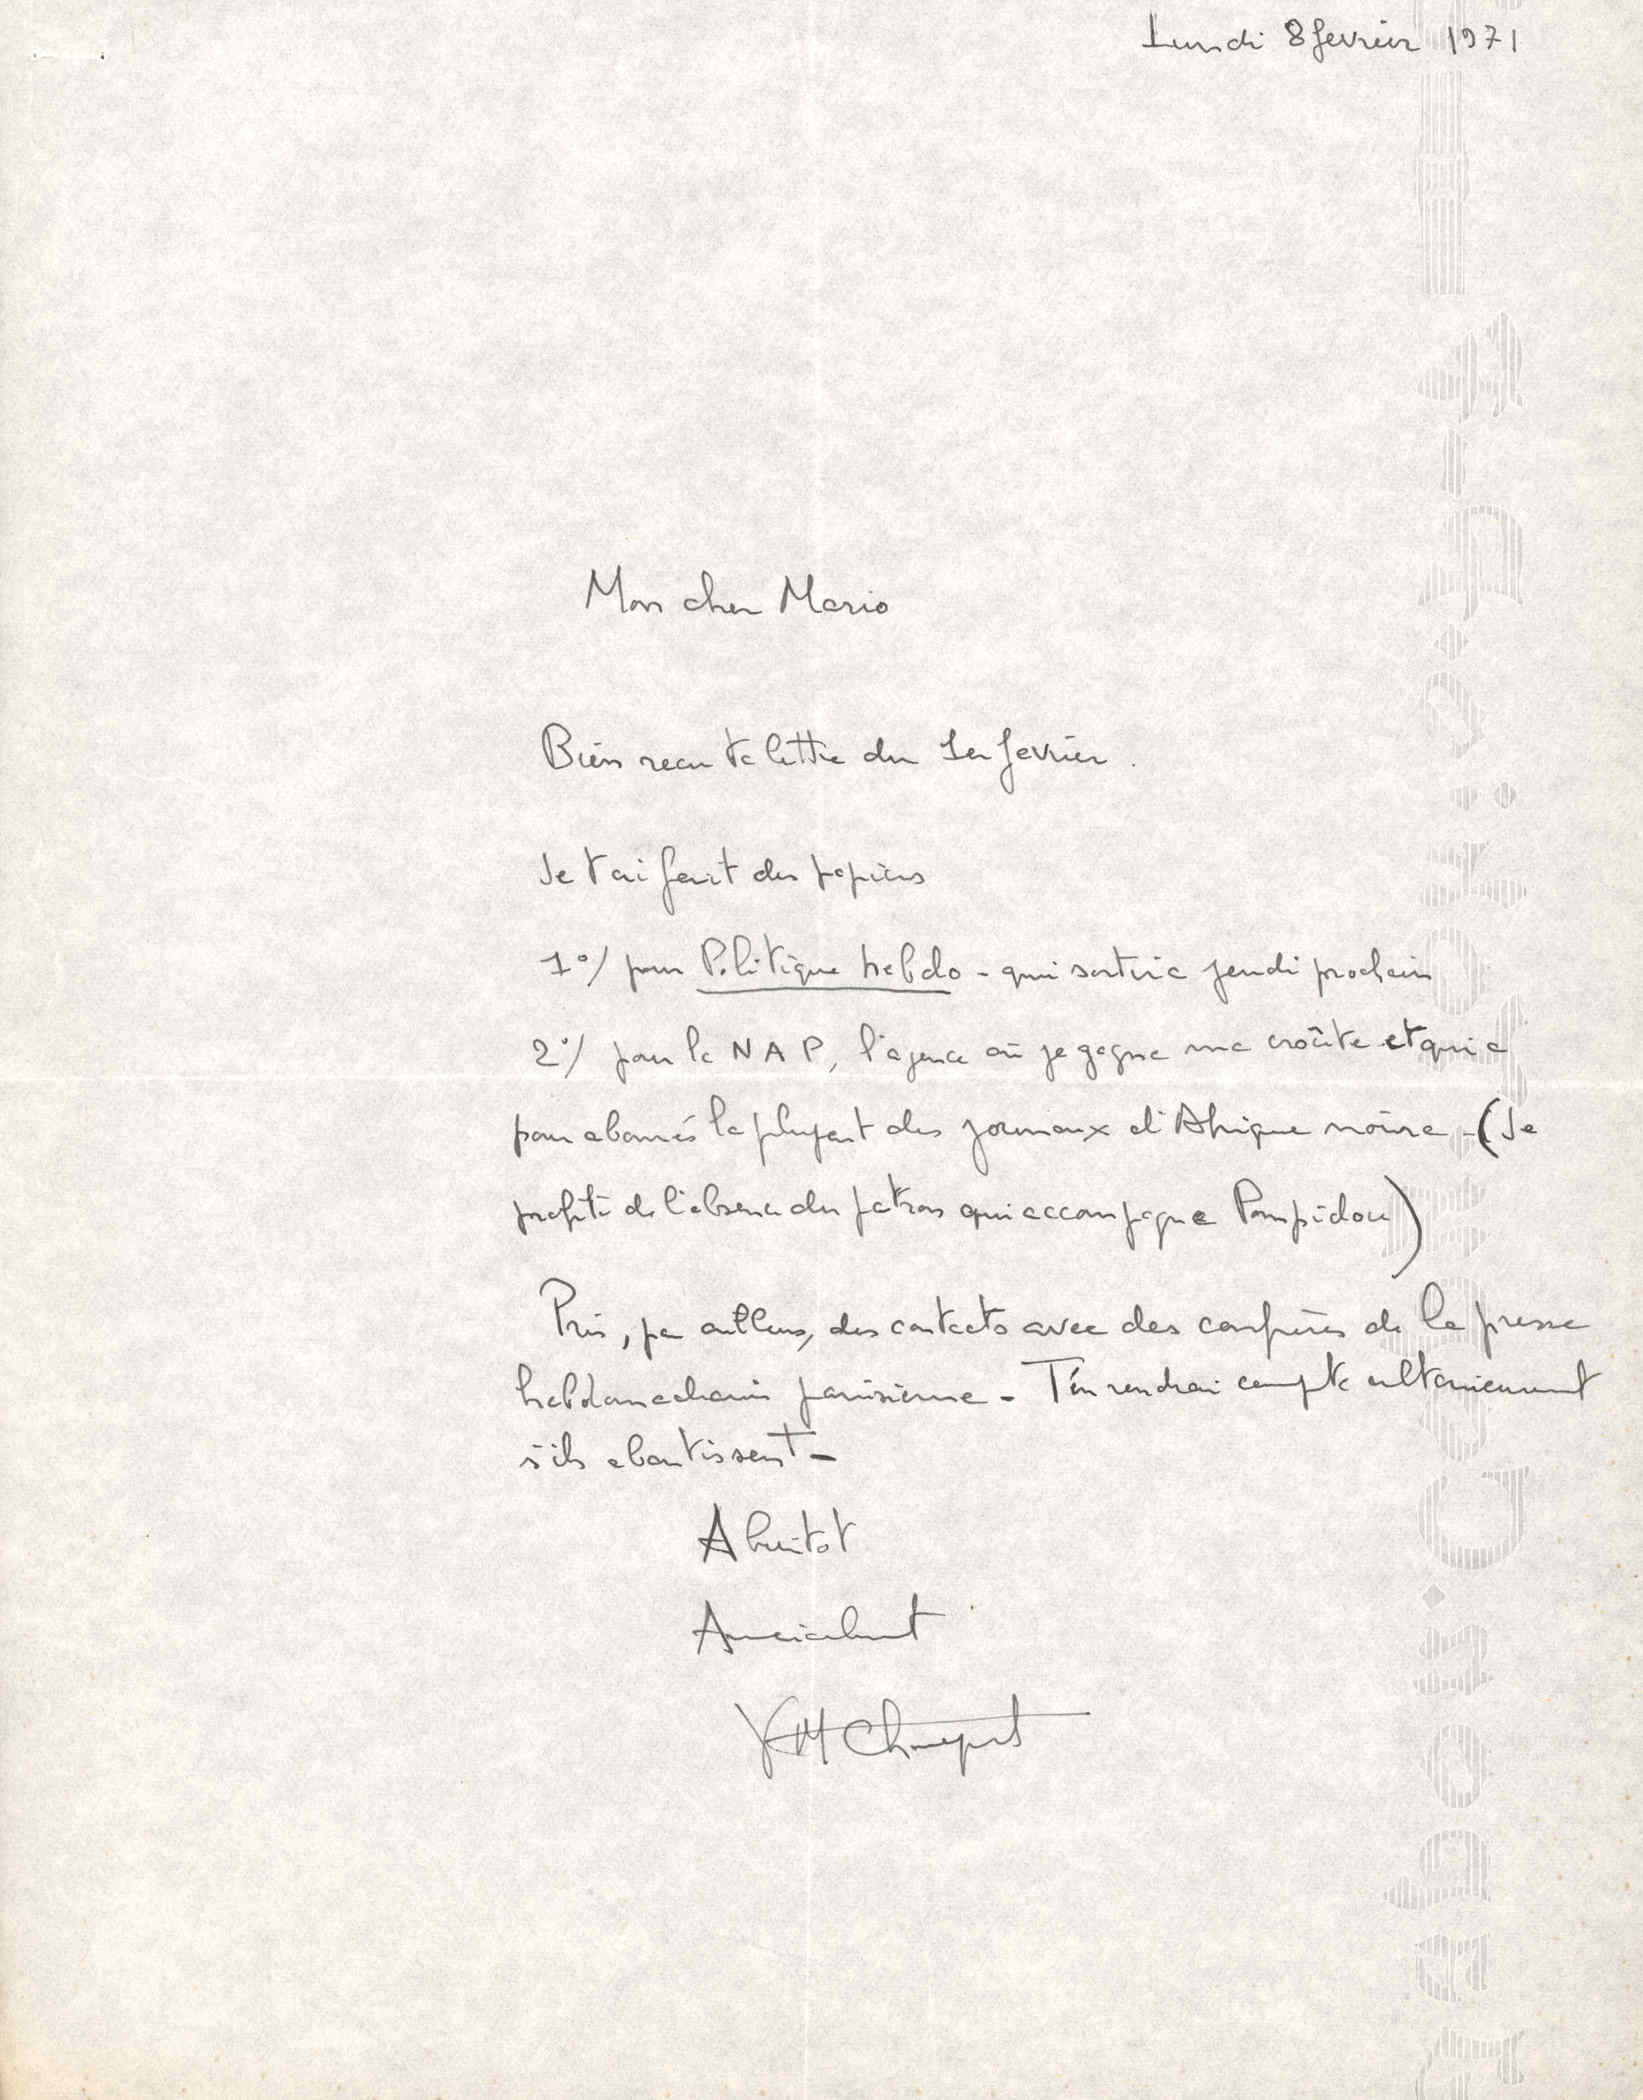 Lundi 8 février 1971
Mon cher Mario
Bien reçu ta lettre du 1er février.
Je t'ai fait des papiers
1°/ pour Politique hebdo - qui sortira jeudi prochain
2°/ pour la NAP, l'agence où je gagne ma croûte et qui a
pour abonnés la plupart des journaux d'Afrique noire - (Je
profite de l'absence du patron qui accompagne Pompidou)
Pris, par ailleurs, des contacts avec des confrères de la presse
hebdomadaire parisienne - T'en rendrai compte ultérieurement
s'ils aboutissent -
A bientot
Amicalement